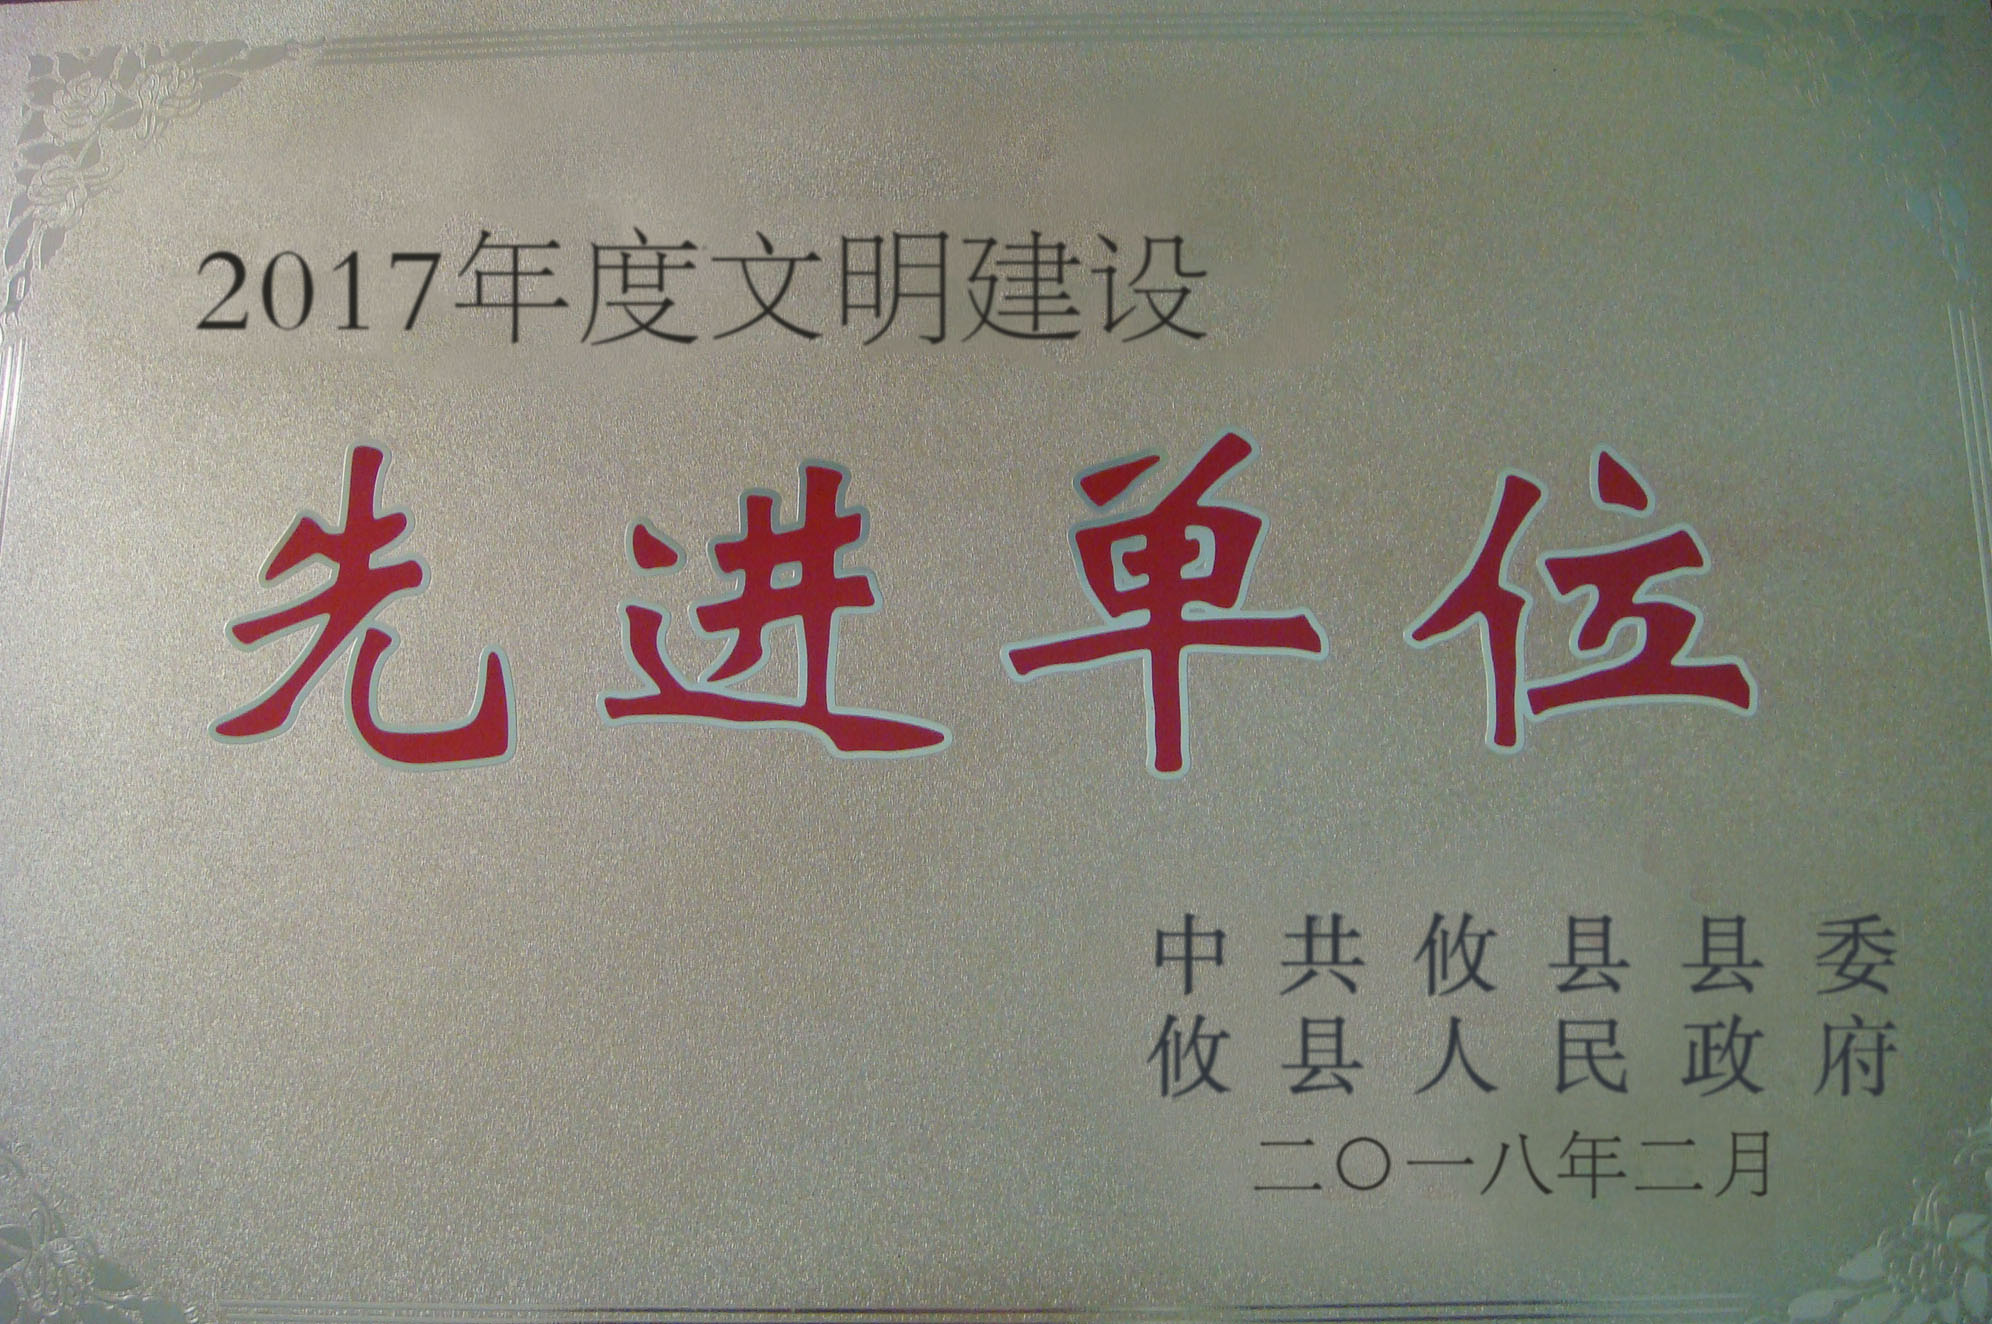 2017年度文明建设
先进单位
中共攸县县委
攸县人民政府
二〇一八年二月